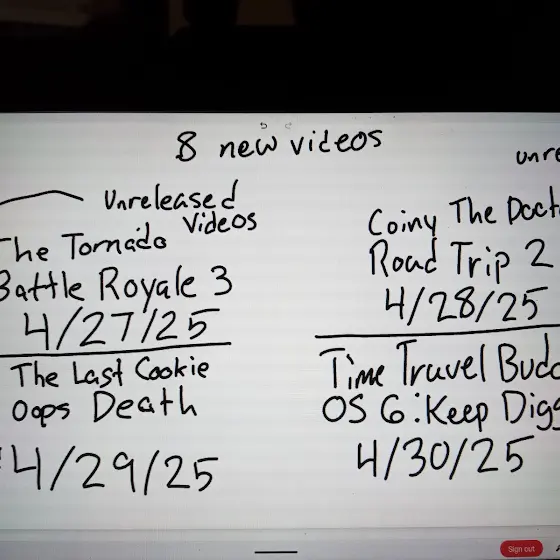 8 new videos
unre
Unreleased
Videos
The Tornado
Battle Royale 3
4/27/25
Coiny The Doct
Road Trip 2
4/28/25
The Last Cookie
Oops Death
4/29/25
Time Travel Budd
OS 6:Keep Digg
4/30/25
Sign out